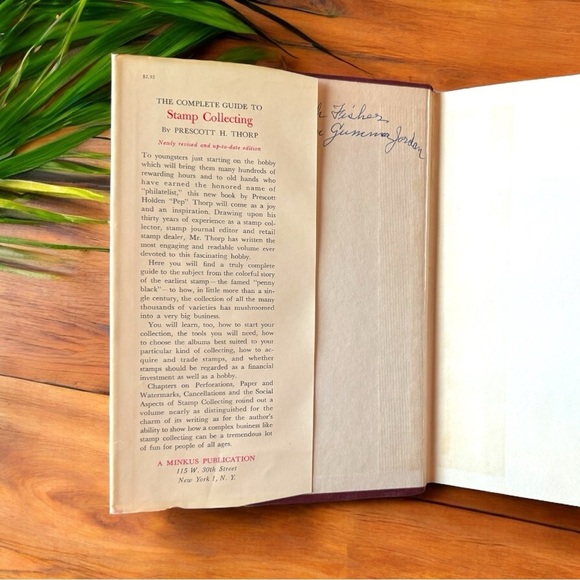 $2.95
THE COMPLETE GUIDE TO
Stamp Collecting
By PRESCOTT H. THORP
Newly revised and up-to-date edition
To youngsters just starting on the hobby
which will bring them many hundreds of
rewarding hours and to old hands who
have earned the honored name of
"philatelist," this new book by Prescott
Holden "Pep" Thorp will come as a joy
and an inspiration. Drawing upon his
thirty years of experience as a stamp col-
lector, stamp journal editor and retail
stamp dealer, Mr. Thorp has written the
most engaging and readable volume ever
devoted to this fascinating hobby.
Here you will find a truly complete
guide to the subject from the colorful story
of the earliest stamp – the famed "penny
black" – to how, in little more than a sin-
gle century, the collection of all the many
thousands of varieties has mushroomed
into a very big business.
You will learn, too, how to start your
collection, the tools you will need, how
to choose the albums best suited to your
particular kind of collecting, how to ac-
quire and trade stamps, and whether
stamps should be regarded as a financial
investment as well as a hobby.
Chapters on Perforations, Paper and
Watermarks, Cancellations and the Social
Aspects of Stamp Collecting round out a
volume nearly as distinguished for the
charm of its writing as for the author's
ability to show how a complex business like
stamp collecting can be a tremendous lot
of fun for people of all ages.
A MINKUS PUBLICATION
115 W. 30th Street
New York 1, N. Y.
Fisher
Jordan